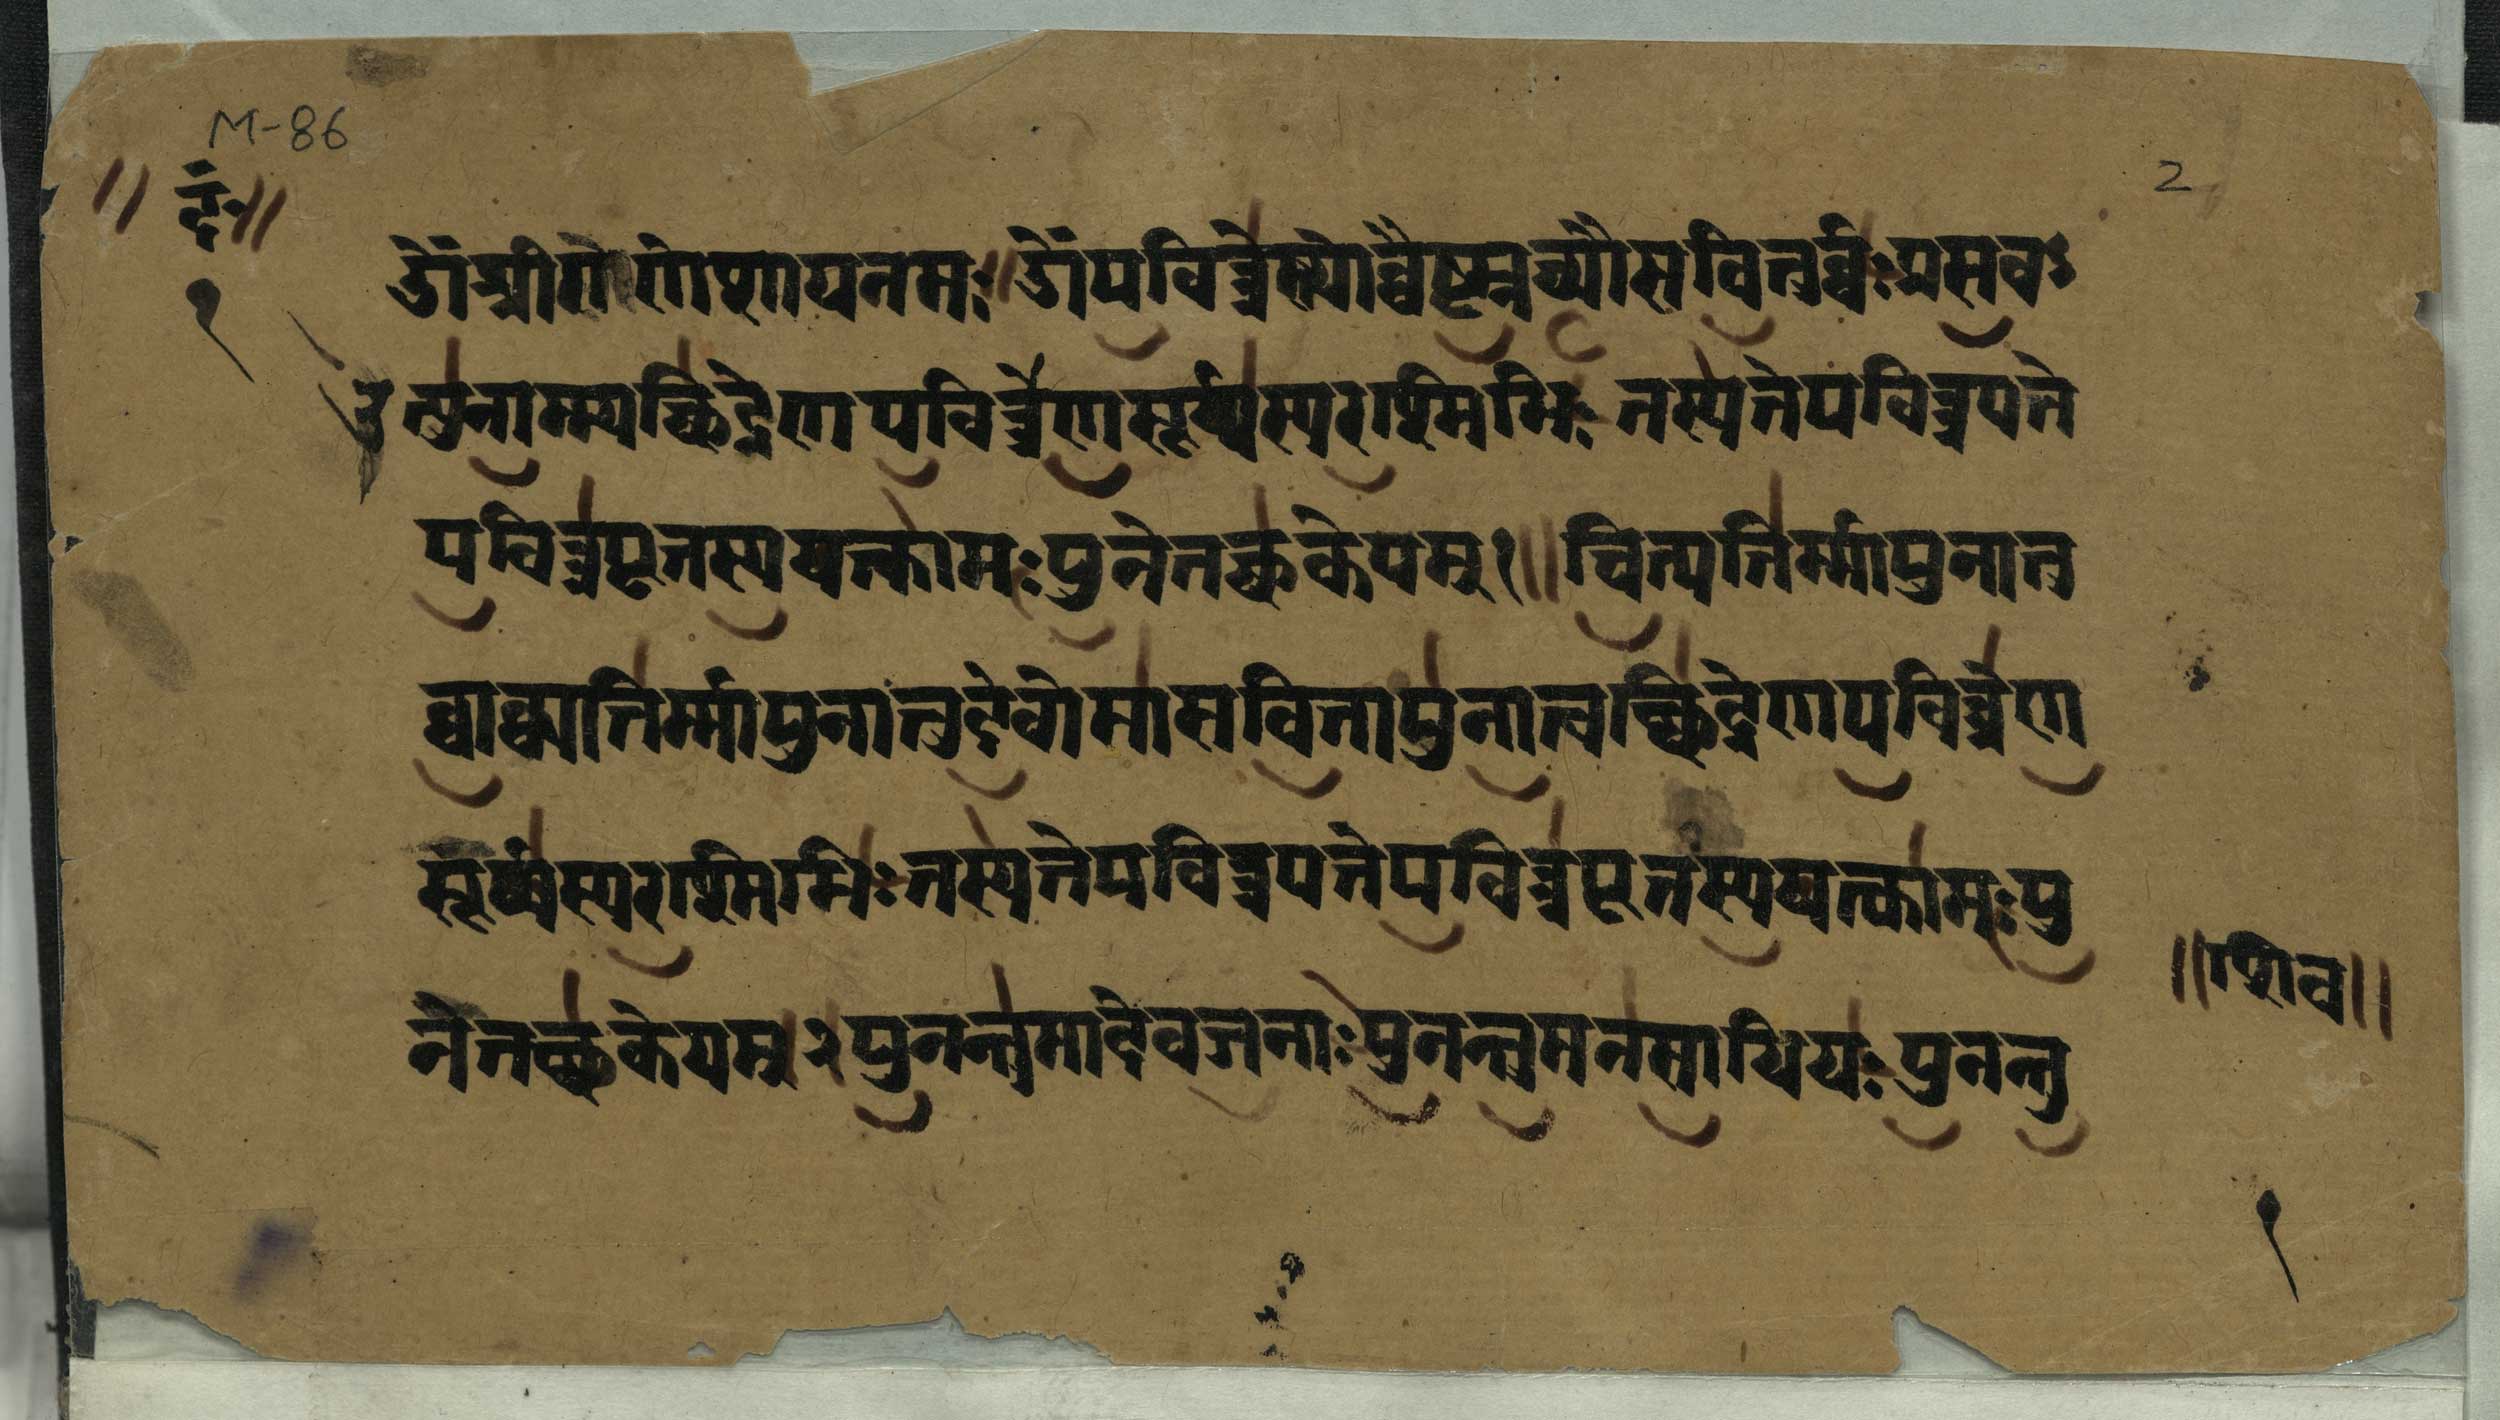 M-86
2
॥ दं॰॥
१
ॐ श्रीगणेशायनमः॥ ॐ पवित्रेस्थोव्वैष्णव्यौसवितुर्व्वःप्रसवऽ
उत्पुनाम्म्यच्छिद्रेणपवित्रेणसूर्य्यस्यरश्मिभिः तस्यतेपवित्रपते
पवित्रपूतस्ययत्कामःपुनेतच्छकेयम् १॥ चित्पतिर्म्मापुनातु
व्वाक्पतिर्म्मापुनातुदेवोमासवितापुनात्वच्छिद्रेणपवित्रेण
सूर्य्यस्यरश्मिभिः तस्यतेपवित्रपतेपवित्रपूतस्ययत्कामःपु
नेतच्छकेयम्। २।पुनन्तुमादेवजनाःपुनन्तुमनसाधियः पुनन्तु
॥शिव॥
१